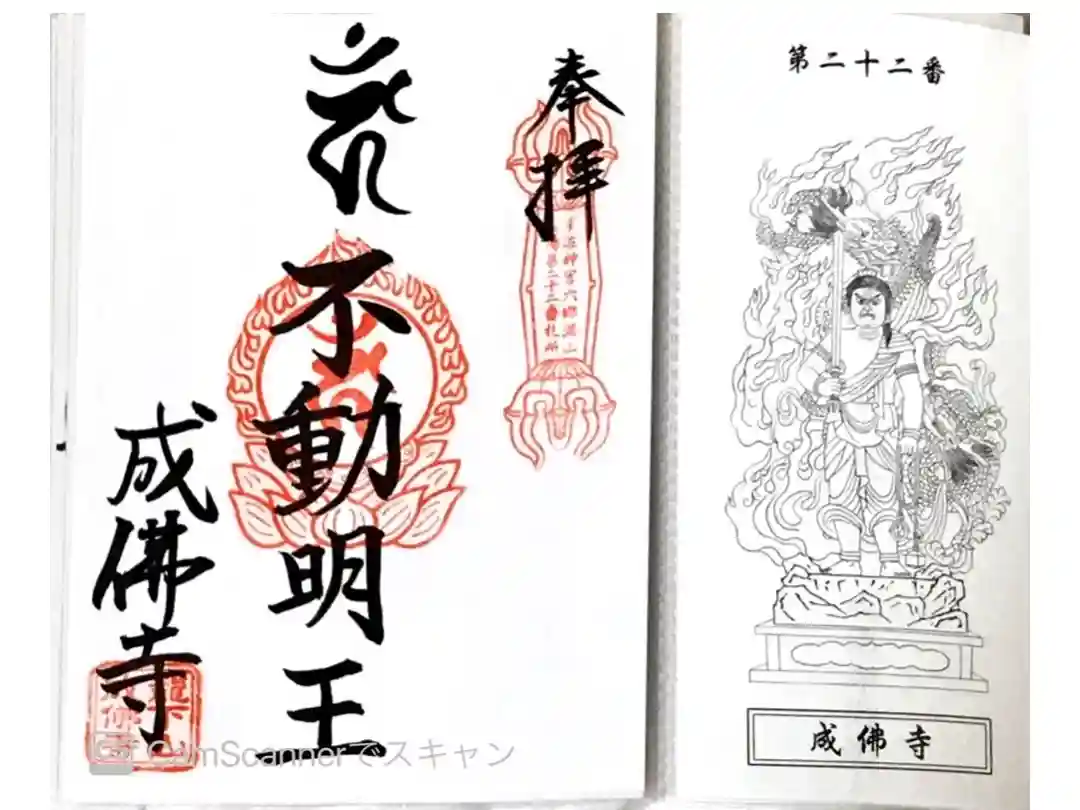 奉拝
不動明王
成佛寺
第二十二番
成佛寺
CamScannerでスキャン